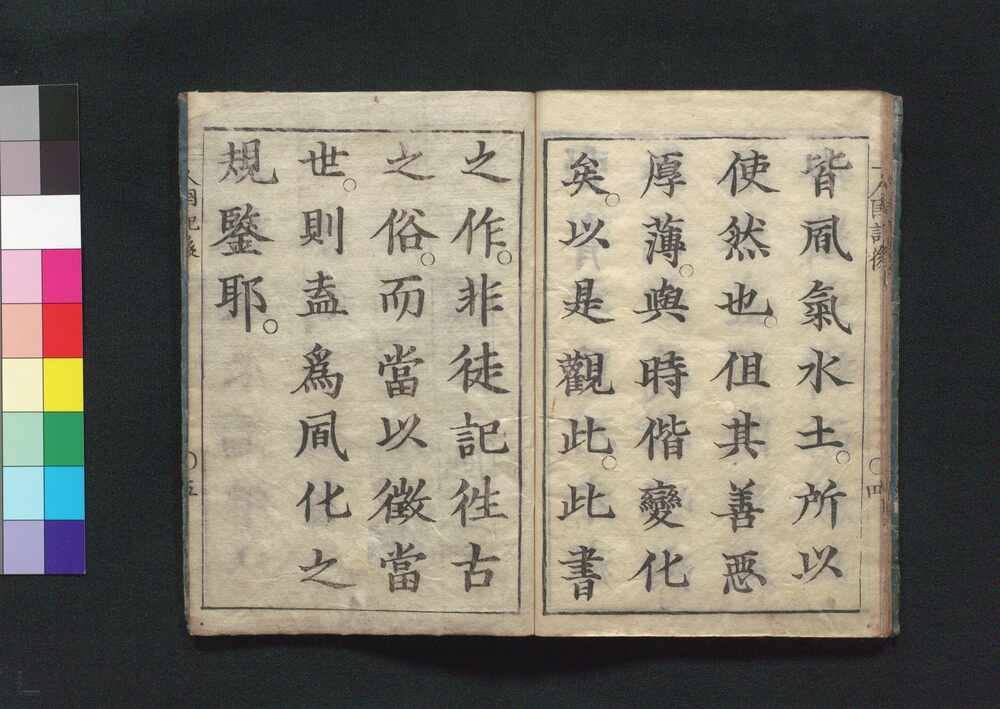 皆凮氣水土。所以
使然也。但其善惡
厚薄。與時偕變化
矣。以是觀此。此書
之作。非徒記徃古
之俗。而當以徵當
世。則盍爲凮化之
規鑒耶。
人國記後
四
五